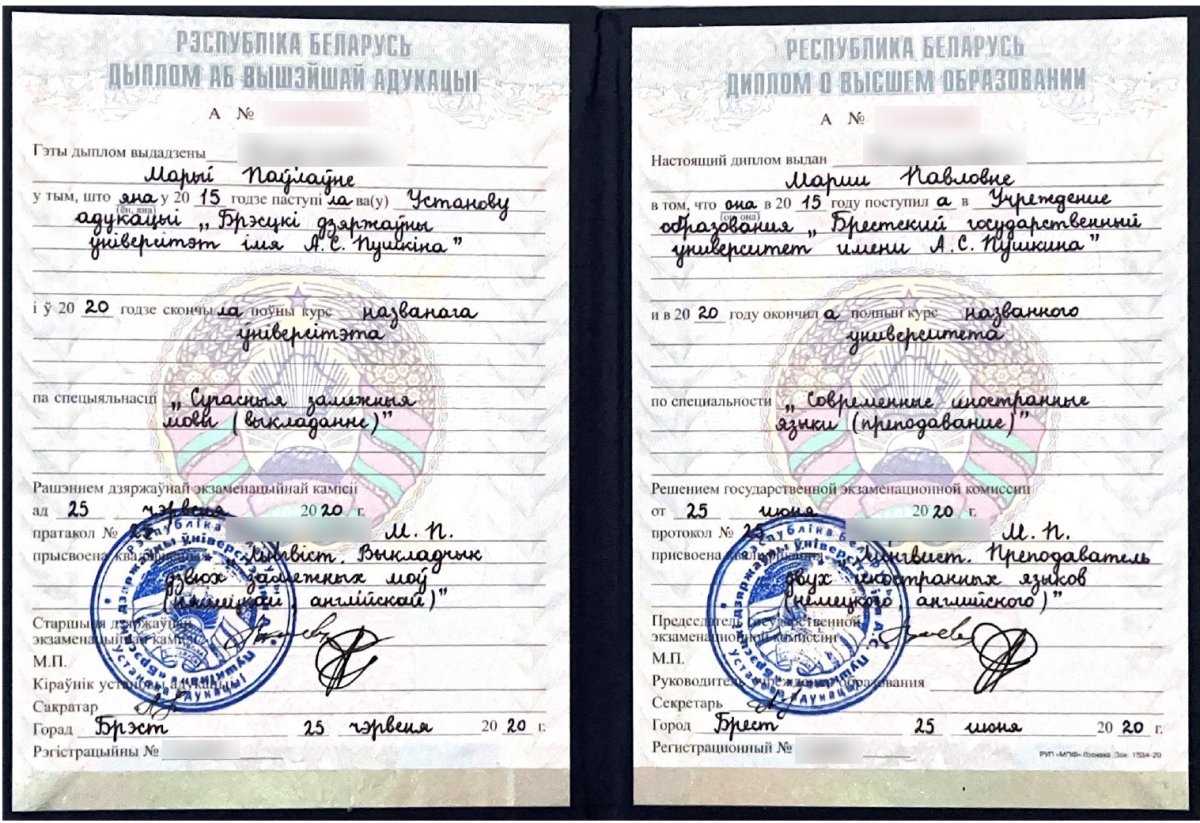 РЭСПУБЛІКА БЕЛАРУСЬ
ДЫПЛОМ АБ ВЫШЭЙШАЙ АДУКАЦЫІ
А №
Гэты дыплом выдадзены
Марыі Паўлаўне
у тым, што яна у 20 15 годзе паступі ла ва(у) Установу
(ён, яна)
адукацыі „Брэсцкі дзяржаўны
ўніверсітэт імя А.С. Пушкіна"
і ў 20 20 годзе скончы ла поўны курс названага
ўніверсітэта
па спецыяльнасці „Сучасныя замежныя
мовы (выкладанне)"
Рашэннем дзяржаўнай экзаменацыйнай камісіі
ад 25 чэрвеня 2020 г.
пратакол № М. П.
прысвоена кваліфікацыя Лінгвіст. Выкладчык
дзвюх замежных моў
(нямецкай англійскай)"
Старшыня дзяржаўнай
экзаменацыйнай камісіі
М.П.
Кіраўнік установы адукацыі
Сакратар
Горад Брэст 25 чэрвеня 2020 г.
Рэгістрацыйны №
РЕСПУБЛИКА БЕЛАРУСЬ
ДИПЛОМ О ВЫСШЕМ ОБРАЗОВАНИИ
А №
Настоящий диплом выдан
Марии Павловне
в том, что она в 20 15 году поступил а в Учреждение
(он, она)
образования „Брестский государственный
университет имени А.С. Пушкина"
и в 20 20 году окончил а полный курс названного
университета
по специальности „Современные иностранные
языки (преподавание)"
Решением государственной экзаменационной комиссии
от 25 июня 2020 г.
протокол № М. П.
присвоена квалификация Лингвист. Преподаватель
двух иностранных языков
(немецкого английского)"
Председатель государственной
экзаменационной комиссии
М.П.
Руководитель учреждения образования
Секретарь
Город Брест 25 июня 2020 г.
Регистрационный №
РУП «МПФ» Гознака. Зак. 1584-20